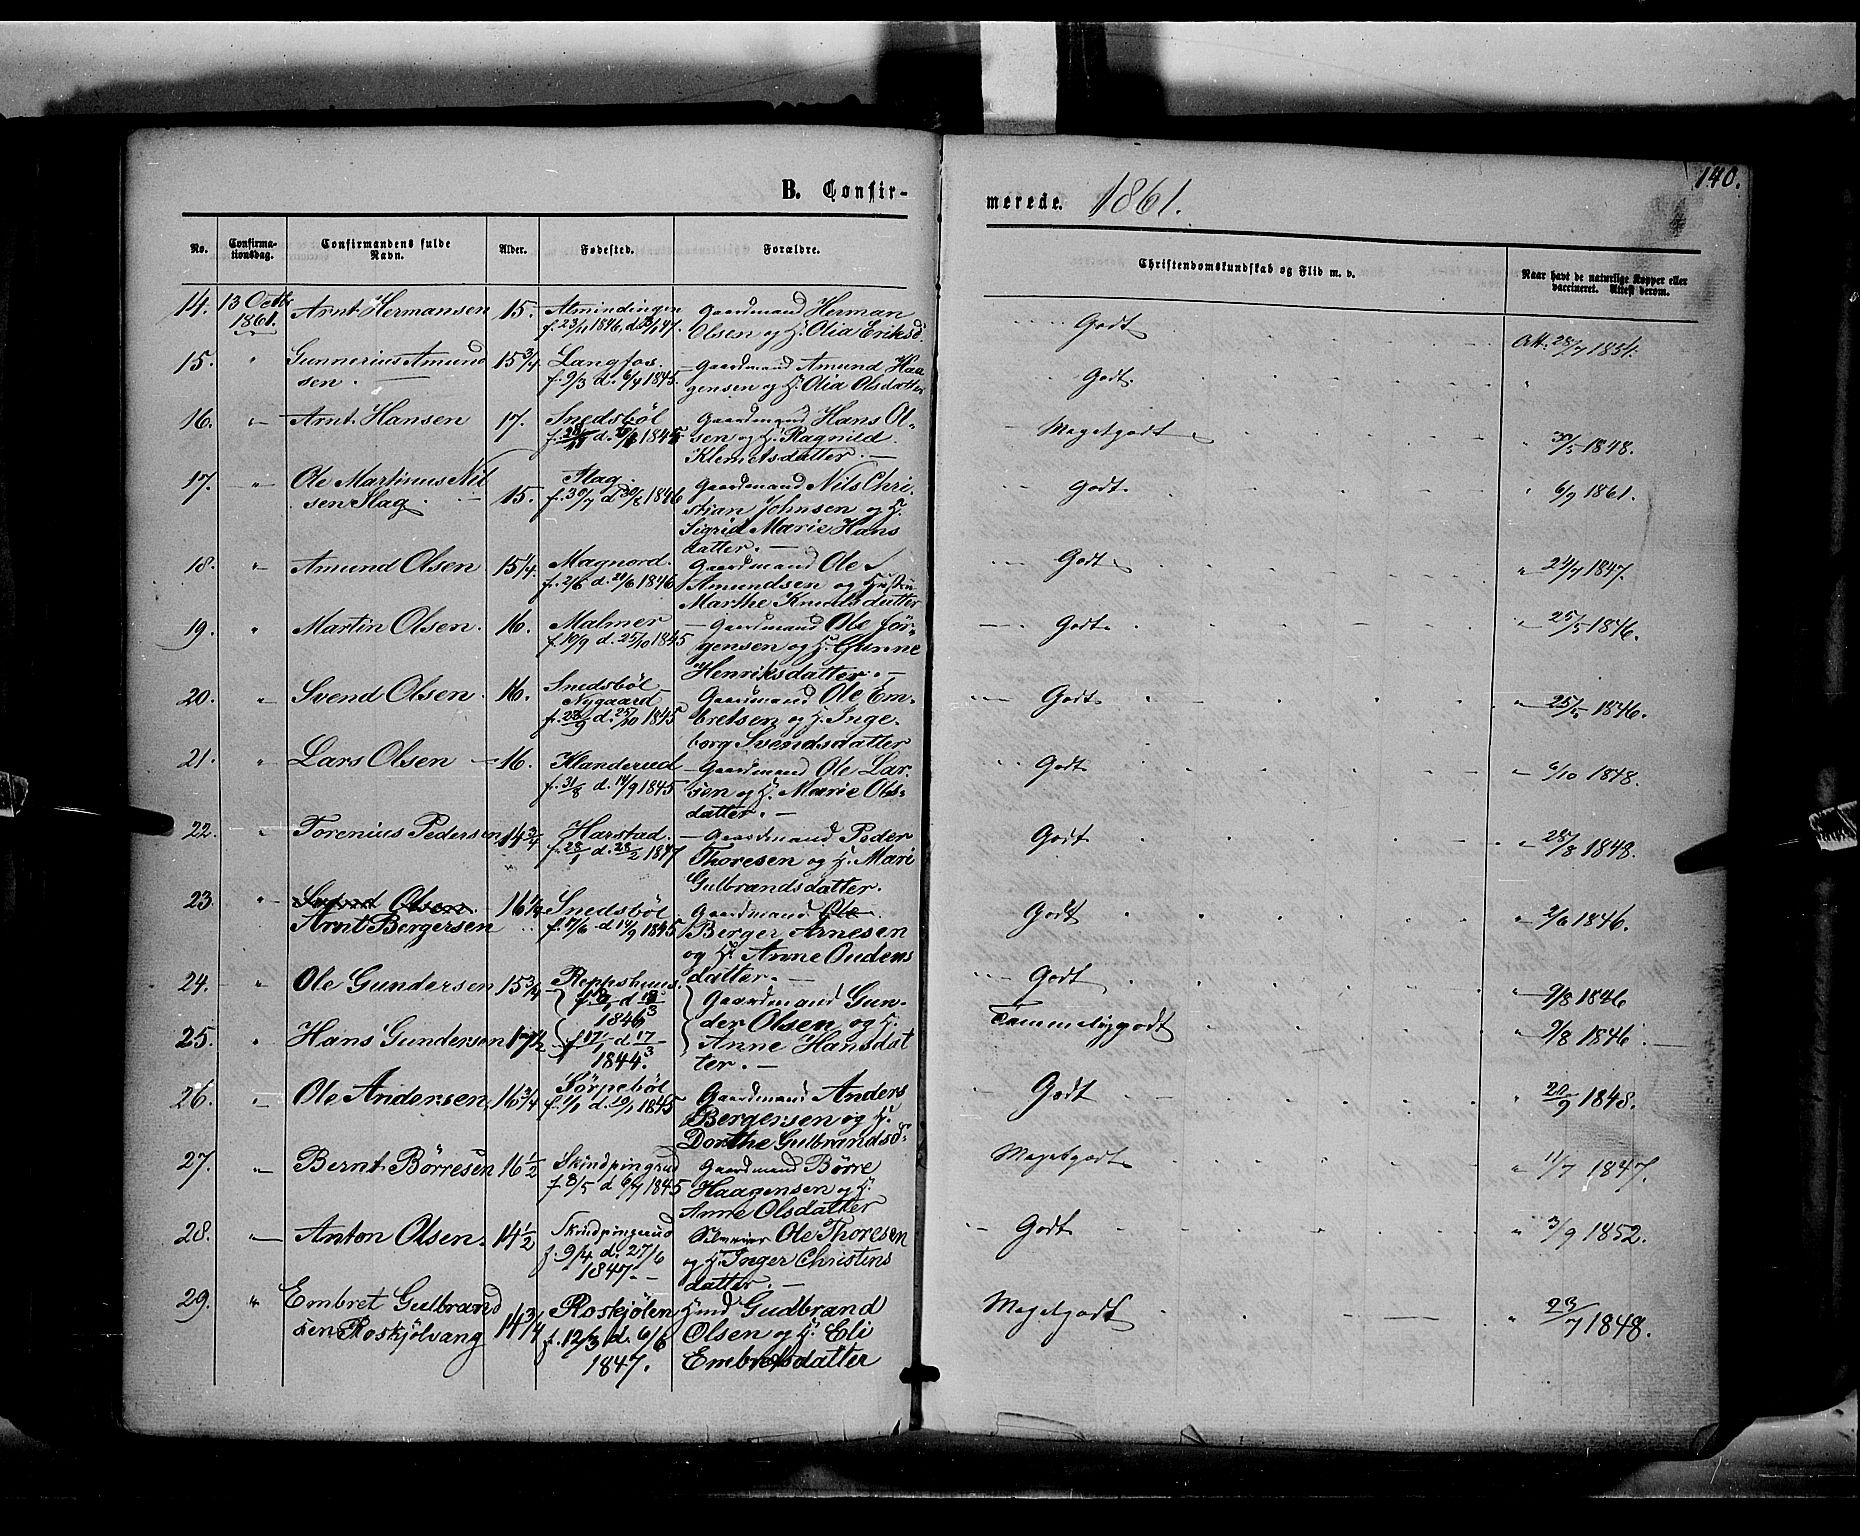 B. Confir-
merede. 1861.
140.
No.
Confirma-
tionsdag.
Confirmandens fulde
Navn.
Alder.
Fødested.
Forældre.
Christendomskundskab og Flid m. v.
Naar havt de naturlige Kopper eller
vaccineret. Attest derom.
14. 13 Octbr Arnt Hermansen 15. Almindingen Gaardmand Herman
1861. f. 23/1 1846 d. 47. Olsen og H. Olia Eriksd. Godt Att. 28/7 1854.
15. " Gunnerius Amund 15 3/4 Langfos. Gaardmand Amund Haa
sen. f. 9/3 d. 6/4 1845. gensen og H. Olia Olsdatter Godt "
16. " Arnt Hansen 17. Snedsböl Gaardmand Hans Ol-
1845. sen og H. Ragnild Megetgodt " 30/5 1848.
Klemetsdatter. —
17. " Ole Martinus Nil 15. Slag. Gaardmand Nils Chri-
sen Slag. f. 30/7 d 30/8 1846 stian Johnsen og H. Godt " 6/9 1861.
Sigrid Marie Hans
datter. —
18. " Amund Olsen 15 1/4. Magnord. Gaardmand Ole
f. 2/6 d. 21/6 1846 Amundsen og Hustru Godt " 24/7 1847.
Marthe Knudsdatter
19. " Martin Olsen. 16. Malmer — Gaardmand Ole Jör-
f. 10/9 d. 25/10 1845 gensen og H. Gunne Godt " 25/5 1846.
Henriksdatter. —
20. " Svend Olsen. 16. Snedsböl Gaardmand Ole Em-
Nygaard bretsen og H. Inge- Godt " 25/5 1846.
f. 23/9 d. 25/10 1845 borg Svendsdatter
21. " Lars Olsen 16. Klanderud — Gaardmand Ole Lar-
f. 31/8 d. 14/9 1845 sen og H. Marie Ols- Godt " 6/10 1848.
datter. —
22. " Torenius Pedersen 14 3/4 Harstad. — Gaardmand Peder
f. 23/1 d. 28/2 1847 Thoresen og H. Mari Godt " 28/8 1848.
Gulbrandsdatter.
23. " Svend Olsen. 16 1/4 Snedsböl Gaardmand Ole
Arnt Bergersen f. 17/6 d 14/9 1845 Berger Arnesen Godt " 2/6 1846.
og H. Anne Oudens
datter. —
24. " Ole Gundersen 15 3/4 Reppshuus. Gaardmand Gun-
1846 der Olsen og H. Godt " 9/8 1846
25. " Hans Gundersen 17 1/2 f. 17/1 d 17/3 Anne Hansdat
1844. ter. — Temmeliggodt " 9/8 1846.
26. " Ole Andersen 16 3/4 Törpeböl Gaardmand Anders
1845 Bergersen og H. Godt " 20/9 1848.
Dorthe Gulbrandsd.
27. " Bernt Börresen 16 1/2 Skindpingrud Gaardmand Börre
f. 3/5 d 6/7 1845 Haagensen og H. Megetgodt " 11/7 1847.
Anne Olsdatter
28. Anton Olsen. 14 1/2 Skindpingrud Ole Thoresen
f. 9/4 d. 27/6 og H. Inger Christens Godt " 3/9 1852.
1847. — datter. —
29. " Embret Gulbrand 14 3/4 Roskjölen Hmd Gudbrand
sen Roskjölvang f. 12/3 d. 6/6 Olsen og H. Eli Megetgodt " 23/7 1848.
1847. Embretsdatter